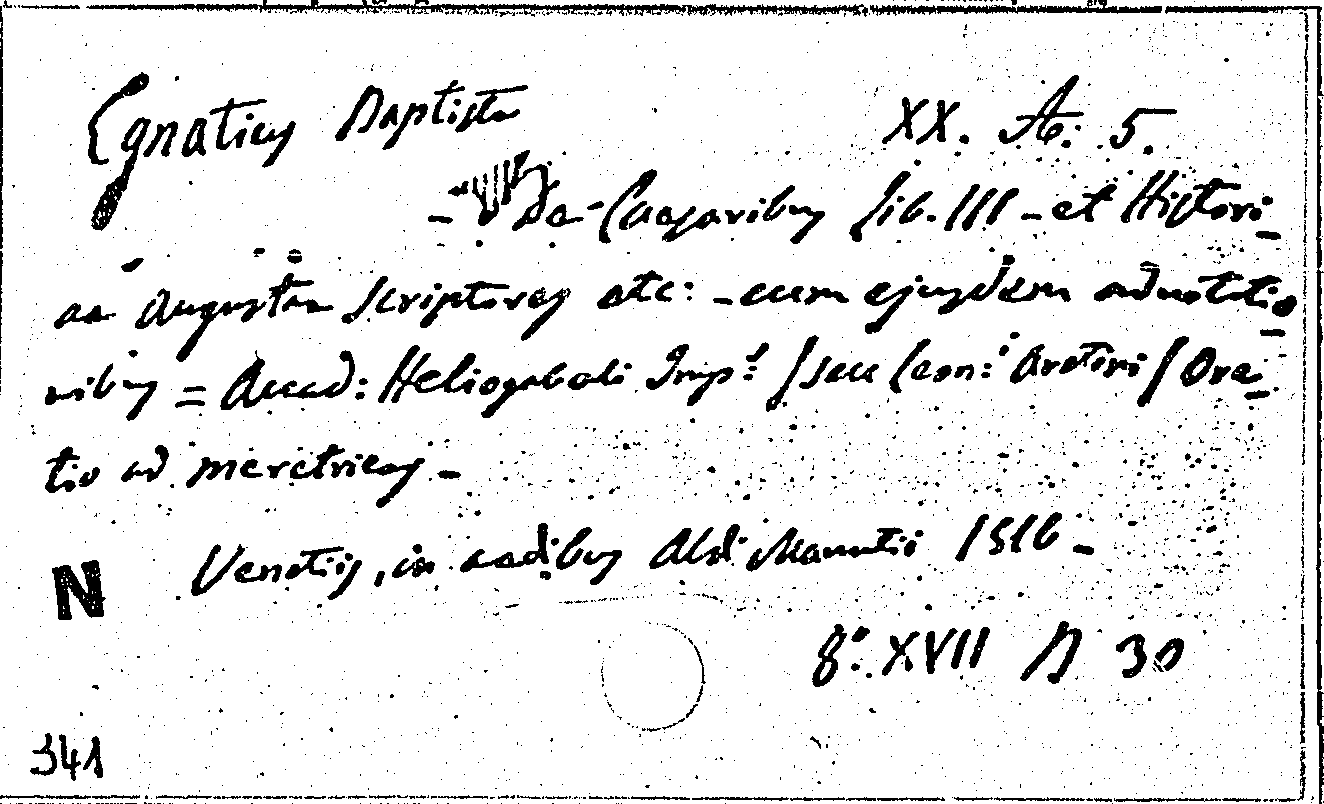 Egnatius Baptista XX. A. 5.
- De Caesaribus lib. III - et Histori_
ae Augustae Scriptores etc: - cum ejusdem adnotatio_
nibus = Accad: Heliogabali Imp: / seu Leon: Aretini / Ora_
tio ad meretrices -
Venetiis, in aedibus Aldi Manutii 1516 -
N
8°. XVII D 30
341